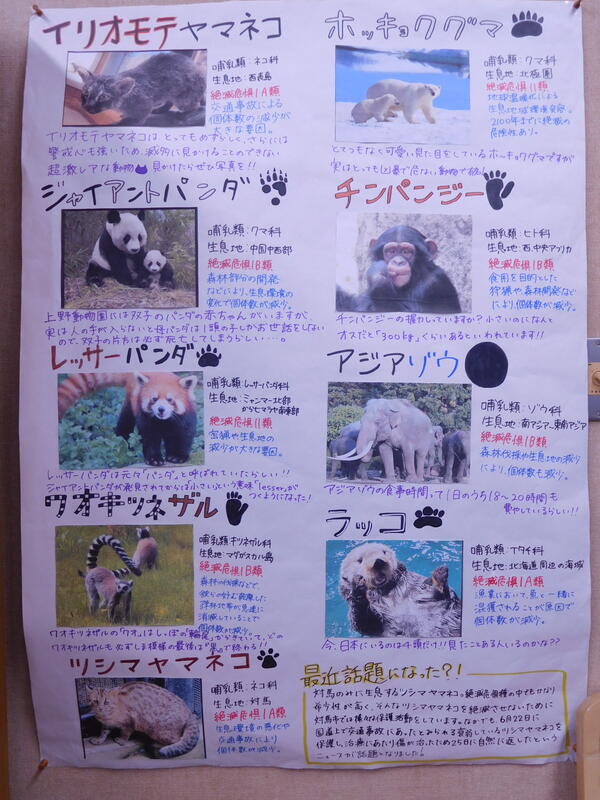 イリオモテヤマネコ
哺乳類：ネコ科
生息地：西表島
絶滅危惧IA類
交通事故による
個体数の減少が
大きな要因。
イリオモテヤマネコはとってもめずらしく、さらには
警戒心も強いため、滅多に見かけることのできない
超激レアな動物 見かけたらぜひ写真を!!
ホッキョクグマ
哺乳類：クマ科
生息地：北極圏
絶滅危惧II類
地球温暖化による
生息地環境
2100年までに絶滅の
危険性あり。
とてつもなく可愛い見た目をしているホッキョクグマですが
実はとっても凶暴で危ない動物
ジャイアントパンダ
哺乳類：クマ科
生息地：中国中西部
絶滅危惧IB類
森林部分の開発
などにより、生息環境の
変化で個体数が減少。
上野動物園には双子のパンダの赤ちゃんがいますが、
実は人の手が入らないと母パンダは1頭の子しかお世話をしない
ので、双子の片方は必ず死亡してしまうらしい…。
チンパンジー
哺乳類：ヒト科
生息地：西、中央アフリカ
絶滅危惧IB類
食用を目的とした
狩猟や森林開発など
により、個体数が減少。
チンパンジーの握力しっていますか？小さいのになんと
オスだと「300kg」くらいあるといわれています!!
レッサーパンダ
哺乳類：レッサーパンダ科
生息地：ミャンマー北部
からヒマラヤ南東部
絶滅危惧IB類
密猟や生息地の
減少が大きな要因。
レッサーパンダは元々「パンダ」と呼ばれていたらしい!!
ジャイアントパンダが発見されてからは小さいという意味「lesser」が
つくようになった!
アジアゾウ
哺乳類：ゾウ科
生息地：南アジア、東南アジア
絶滅危惧IB類
森林伐採や生息地の減少
により、個体数も減少。
アジアゾウの食事時間って1日のうち18～20時間も
費やしているらしい!!
ワオキツネザル
哺乳類：キツネザル科
生息地：マダガスカル島
絶滅危惧IB類
森林の伐採などで、
彼らの好む乾燥した
森林地帯が急速に
消滅していることで
個体数が減少。
ワオキツネザルの「ワオ」はしっぽの「輪尾」からきていて、どの
ワオキツネザルも必ずしま模様の最後は"黒"で終わる!!
ラッコ
哺乳類：イタチ科
生息地：北海道周辺の海域
絶滅危惧IA類
漁業において、魚と一緒に
混獲されることが原因で
個体数が減少。
今、日本にいるのは4頭だけ!!見たことある人いるのかな??
ツシマヤマネコ
哺乳類：ネコ科
生息地：対馬
絶滅危惧IA類
生息環境の悪化や
交通事故により
個体数が減少。
最近話題になった?!
対馬のみに生息するツシマヤマネコ。絶滅危惧種の中でもかなり
希少性が高く、そんなツシマヤマネコを絶滅させないために
対馬市では様々な保護活動をしています。なかでも、6月22日に
国道上で交通事故にあったとみられる衰弱しているツシマヤマネコを
保護し、治療にあたり傷が治ったため25日に自然に返したという
ニュースが話題となりました!